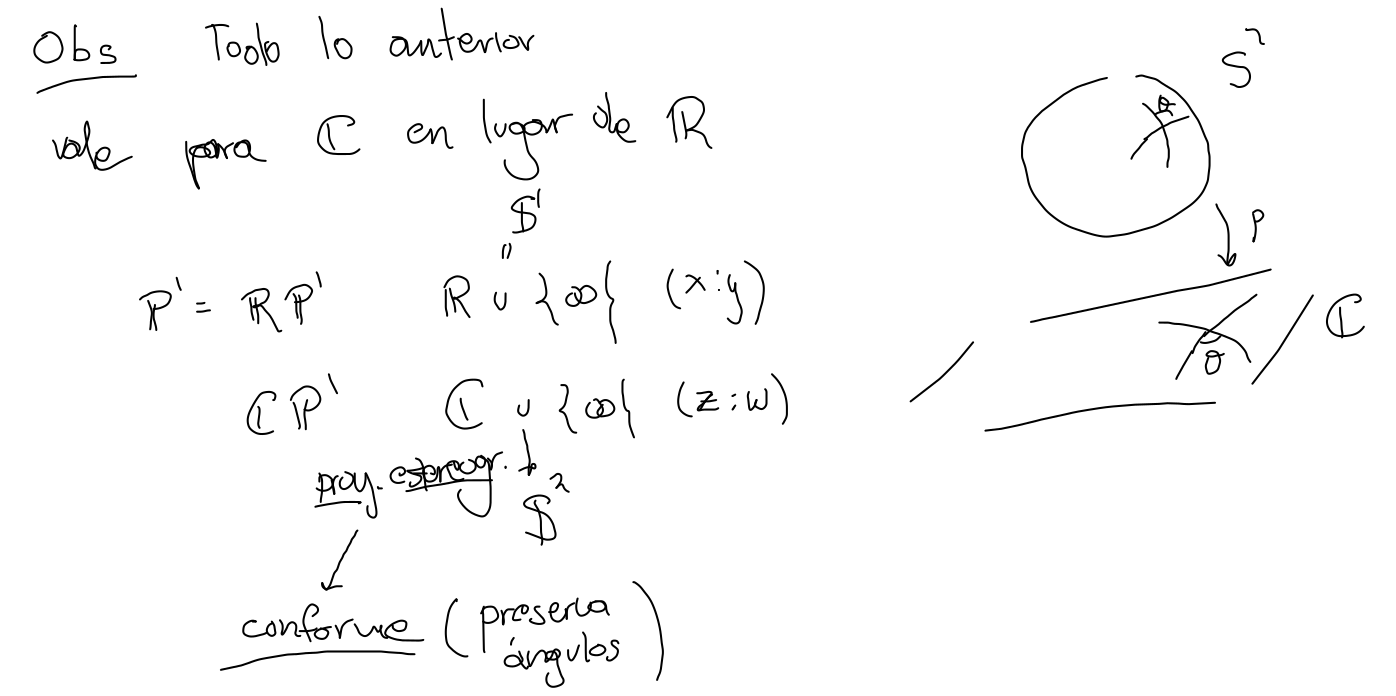 Obs Todo lo anterior
vale para ℂ en lugar de ℝ
𝕊¹
"
ℙ¹ = ℝℙ¹ ℝ ∪ {∞} (x:y)
ℂℙ¹ ℂ ∪ {∞} (z:w)
proy. estereogr. ↓
𝕊²
conforme (preserva
ángulos)
S²
θ
P
ℂ
θ